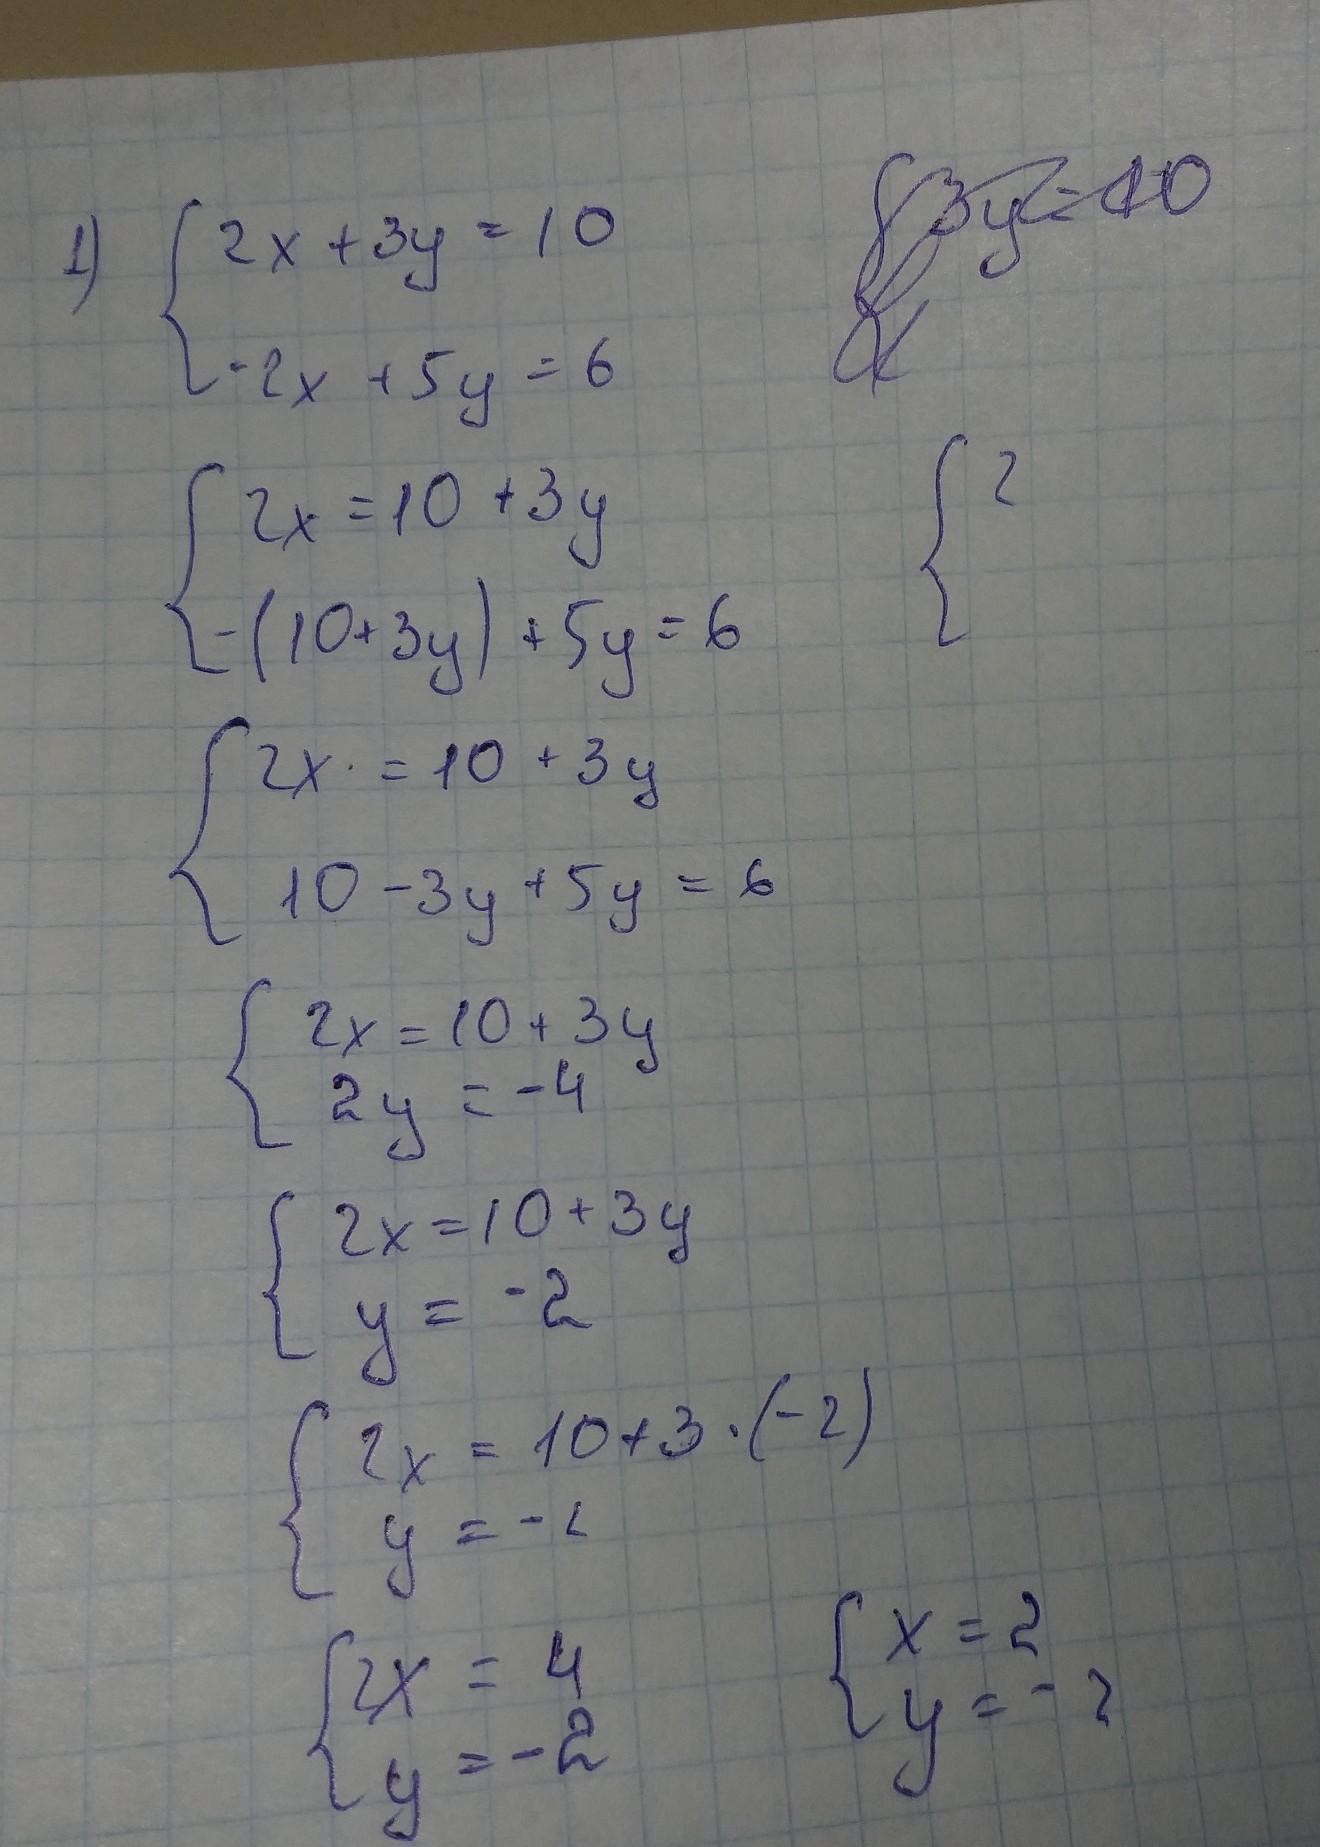 1) 2x+3y=10
-2x+5y=6
2x=10+3y
-(10+3y)+5y=6
2x=10+3y
10-3y+5y=6
2x=10+3y
2y=-4
2x=10+3y
y=-2
2x=10+3·(-2)
y=-2
2x=4
y=-2
3y=10
2
x=2
y=-2